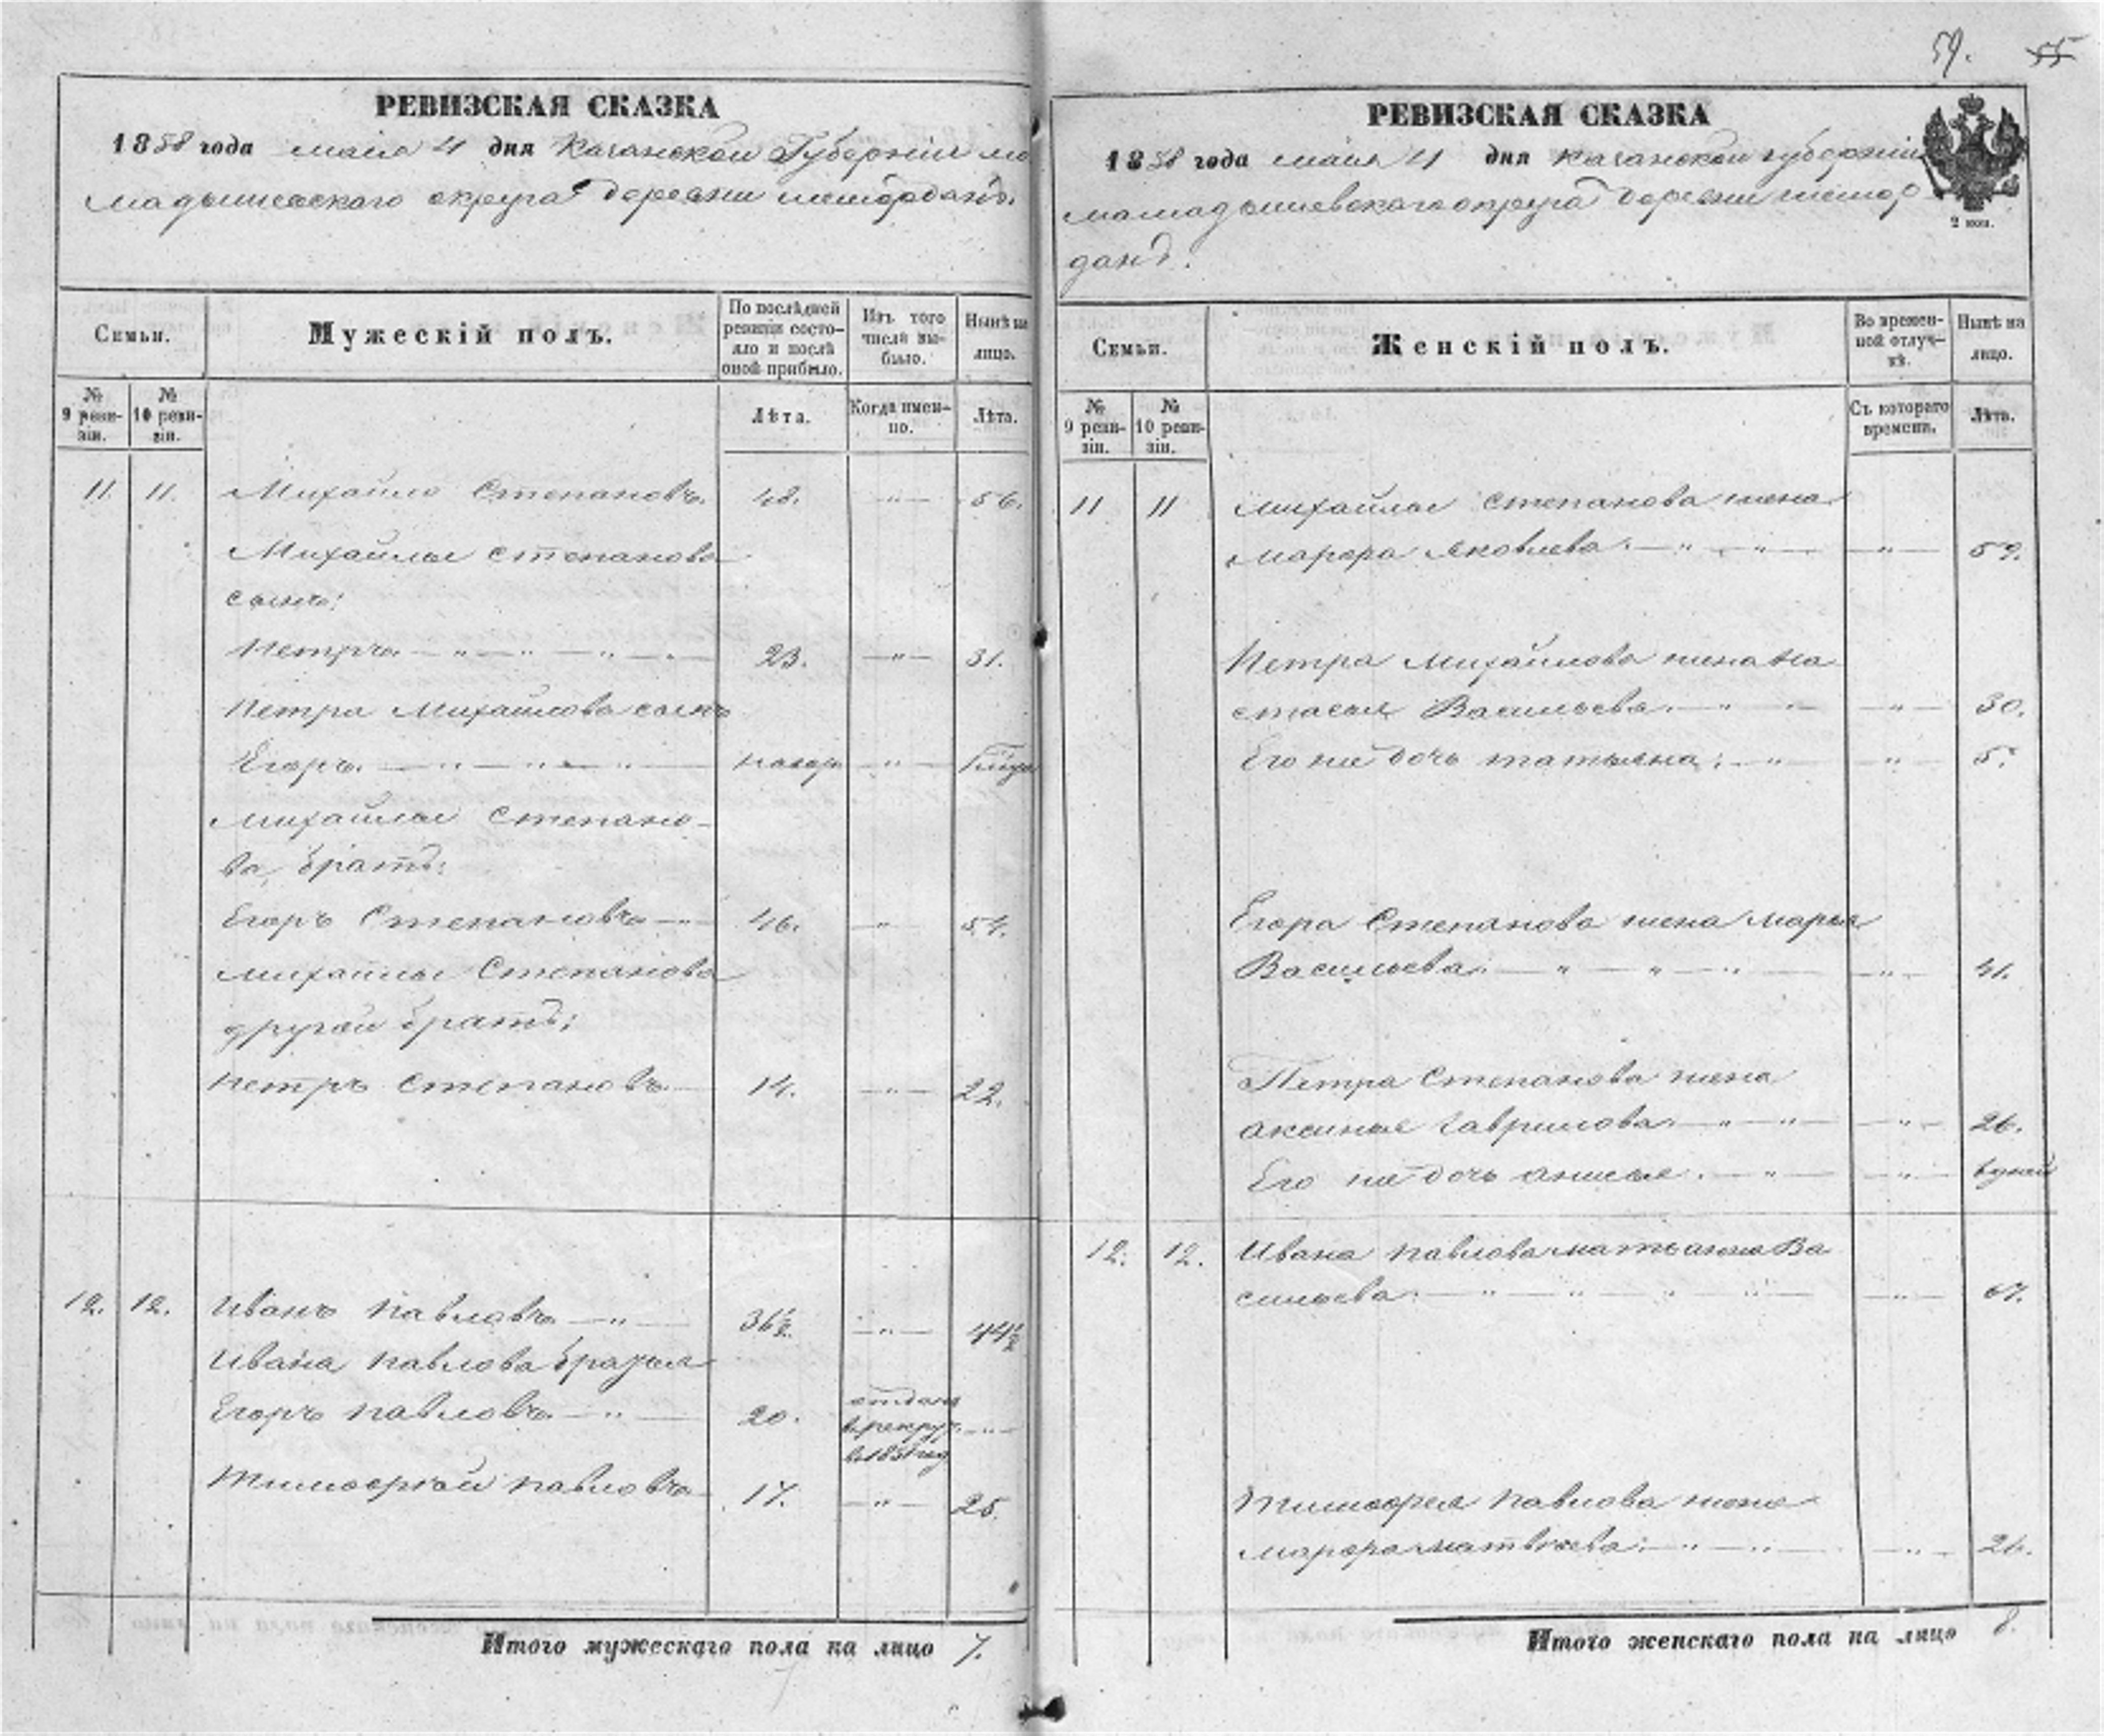 59. 55
РЕВИЗСКАЯ СКАЗКА
1858 года мая 4 дня Казанской Губерніи Ма
мадышевскаго округа деревни шемордан.
Семьи.
Мужескій полъ.
По послѣдней ревизіи состояло и послѣ оной прибыло.
Изъ того числа выбыло.
Нынѣ на лицо.
№ 9 ревизіи.
№ 10 ревизіи.
Лѣта.
Когда именно.
Лѣта.
11. 11. Михайло Степановъ. 48. 56.
Михайлы Степанова
сынъ:
Петръ 23. 31.
Петра Михайлова сынъ
Егоръ.
Михайлы Степано-
ва братъ:
Егоръ Степановъ 46. 54.
Михайлы Степанова
другой братъ:
Петръ Степановъ 14. 22.
12. 12. Иванъ Павловъ 36½ 44½
Ивана Павлова братья
Егоръ Павловъ 20. отданъ
в рекрут.
в 185 год
Тимофей Павловъ 17. 25.
Итого мужескаго пола на лицо 7.
РЕВИЗСКАЯ СКАЗКА
1858 года мая 4 дня Казанской губерніи
мамадышевскаго округа деревни шемор
дан.
2 коп.
Семьи.
Женскій полъ.
Во временной отлучкѣ.
Нынѣ на лицо.
№ 9 ревизіи.
№ 10 ревизіи.
Съ котораго времени.
Лѣта.
11 11 Михайлы Степанова жена
Марфа Яковлева. 59.
Петра Михайлова жена На
стасья Васильева. 30.
Его же дочь татьяна; 5.
Егора Степанова жена Марья
Васильева. 41.
Петра Степанова жена
аксинья Гаврилова 26.
Его же дочь анисья.
12. 12. Ивана Павлова мать анна Ва
сильева. 67.
Тимофея Павлова жена
марфа матвѣева; 26.
Итого женскаго пола на лицо 8.